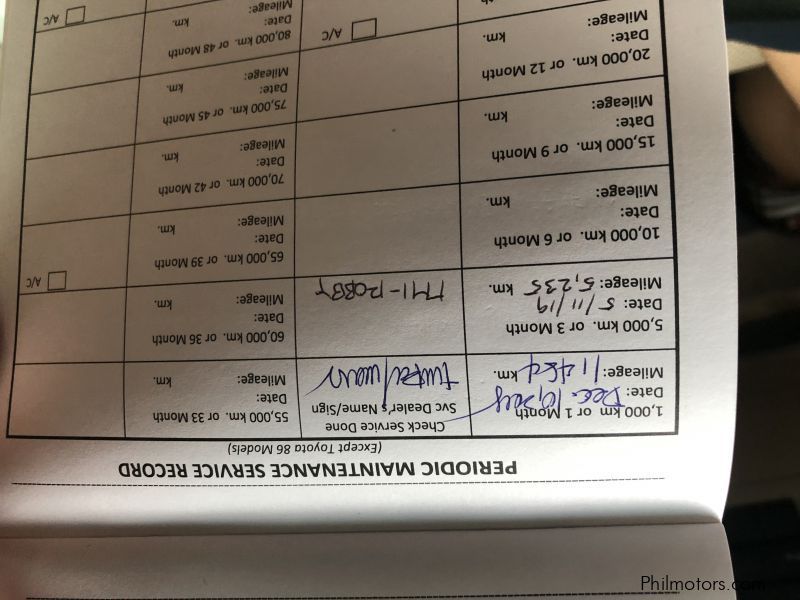 PERIODIC MAINTENANCE SERVICE RECORD
(Except Toyota 86 Models)
1,000 km or 1 Month
Date: Dec. 10,
Mileage: km.
Check Service Done
Svc Dealer's Name/Sign
5,000 km. or 3 Month
Date: 5/11/19
Mileage: 5,235 km.
10,000 km. or 6 Month
Date:
Mileage: km.
15,000 km. or 9 Month
Date:
Mileage: km.
20,000 km. or 12 Month
Date:
Mileage: km.
A/C
55,000 km. or 33 Month
Date:
Mileage: km.
60,000 km. or 36 Month
Date:
Mileage: km.
A/C
65,000 km. or 39 Month
Date:
Mileage: km.
70,000 km. or 42 Month
Date:
Mileage: km.
75,000 km. or 45 Month
Date:
Mileage: km.
80,000 km. or 48 Month
Date:
Mileage: km.
A/C
Philmotors.com